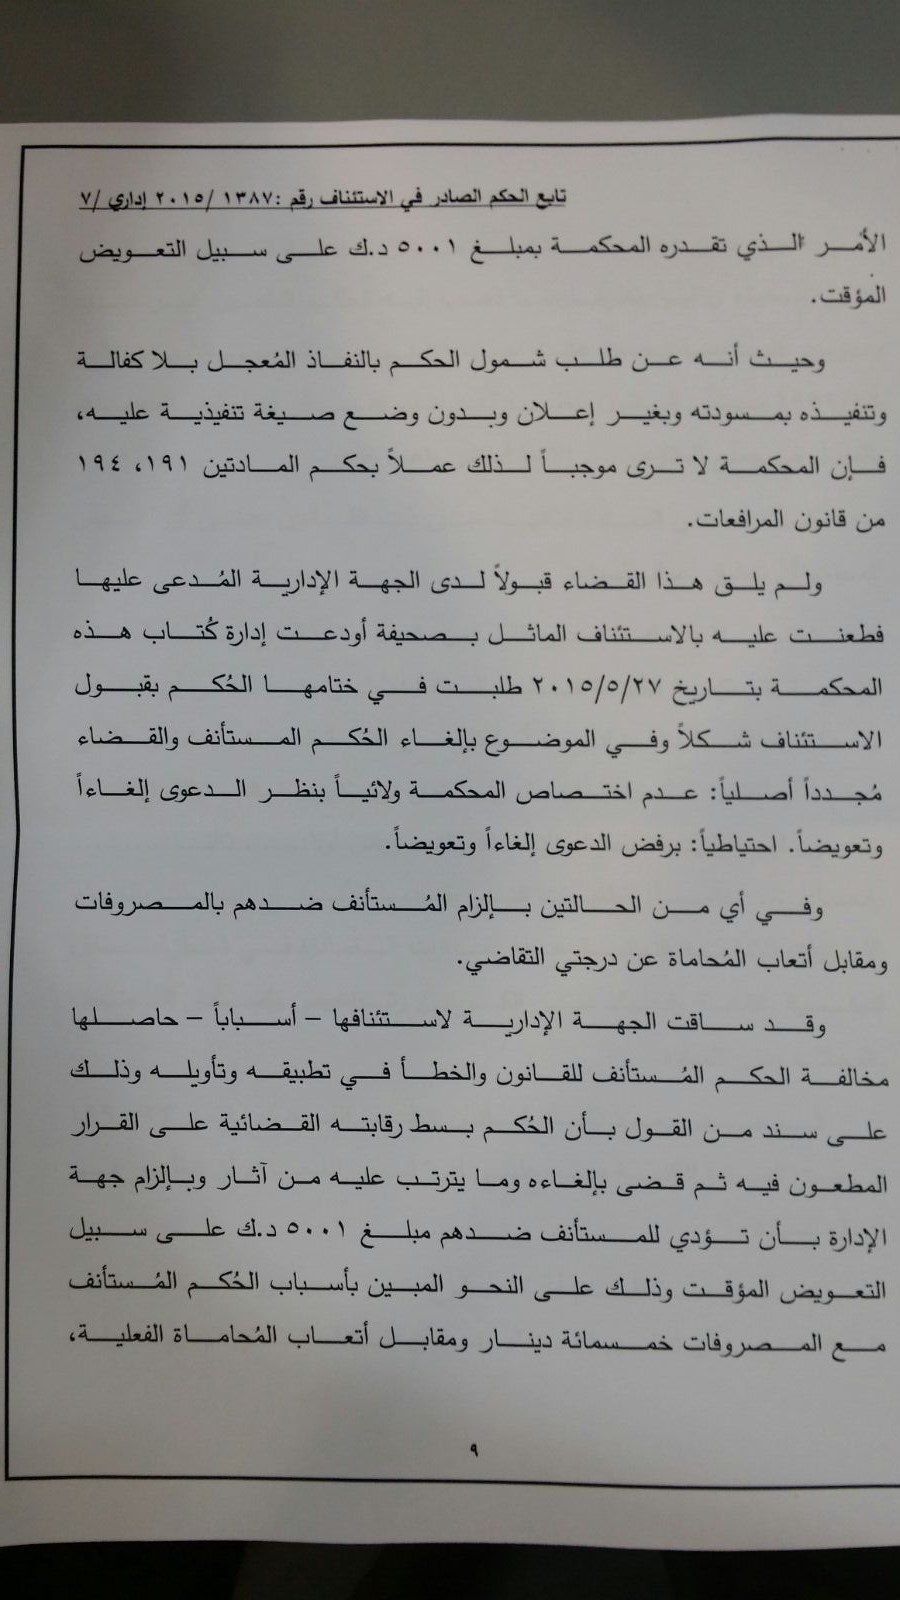 تابع الحكم الصادر في الاستئناف رقم :١٣٨٧ /٢٠١٥ إداري /٧
الأمر الذي تقدره المحكمة بمبلغ ٥٠٠١ د.ك على سبيل التعويض
المؤقت.
وحيث أنه عن طلب شمول الحكم بالنفاذ المُعجل بلا كفالة
وتنفيذه بمسودته وبغير إعلان وبدون وضع صيغة تنفيذية عليه،
فإن المحكمة لا ترى موجباً لذلك عملاً بحكم المادتين ١٩١، ١٩٤
من قانون المرافعات.
ولم يلق هذا القضاء قبولاً لدى الجهة الإدارية المُدعى عليها
فطعنت عليه بالاستئناف الماثل بصحيفة أودعت إدارة كُتاب هذه
المحكمة بتاريخ ٢٠١٥/٥/٢٧ طلبت في ختامها الحُكم بقبول
الاستئناف شكلاً وفي الموضوع بإلغاء الحُكم المستأنف والقضاء
مُجدداً أصلياً: عدم اختصاص المحكمة ولائياً بنظر الدعوى إلغاءاً
وتعويضاً. احتياطياً: برفض الدعوى إلغاءاً وتعويضاً.
وفي أي من الحالتين بإلزام المُستأنف ضدهم بالمصروفات
ومقابل أتعاب المُحاماة عن درجتي التقاضي.
وقد ساقت الجهة الإدارية لاستئنافها – أسباباً – حاصلها
مخالفة الحكم المُستأنف للقانون والخطأ في تطبيقه وتأويله وذلك
على سند من القول بأن الحُكم بسط رقابته القضائية على القرار
المطعون فيه ثم قضى بإلغاءه وما يترتب عليه من آثار وبإلزام جهة
الإدارة بأن تؤدي للمستأنف ضدهم مبلغ ٥٠٠١ د.ك على سبيل
التعويض المؤقت وذلك على النحو المبين بأسباب الحُكم المُستأنف
مع المصروفات خمسمائة دينار ومقابل أتعاب المُحاماة الفعلية،
٩